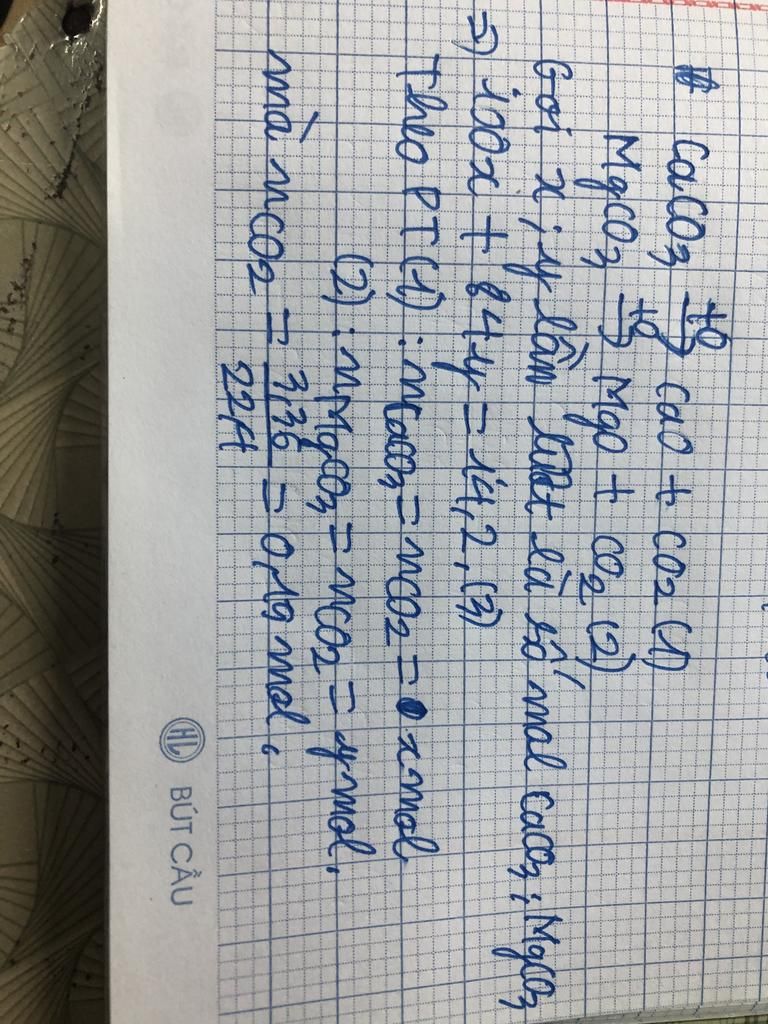 CaCO3 t0→ CaO + CO2 (1)
MgCO3 t0→ MgO + CO2 (2)
Gọi x, y lần lượt là số mol CaCO3; MgCO3
=> 100x + 84y = 14,2 (3)
Theo PT (1): nCaCO3 = nCO2 = x mol
(2): nMgCO3 = nCO2 = y mol.
mà nCO2 = 3,36/22,4 = 0,19 mol.
HL BÚT CẦU